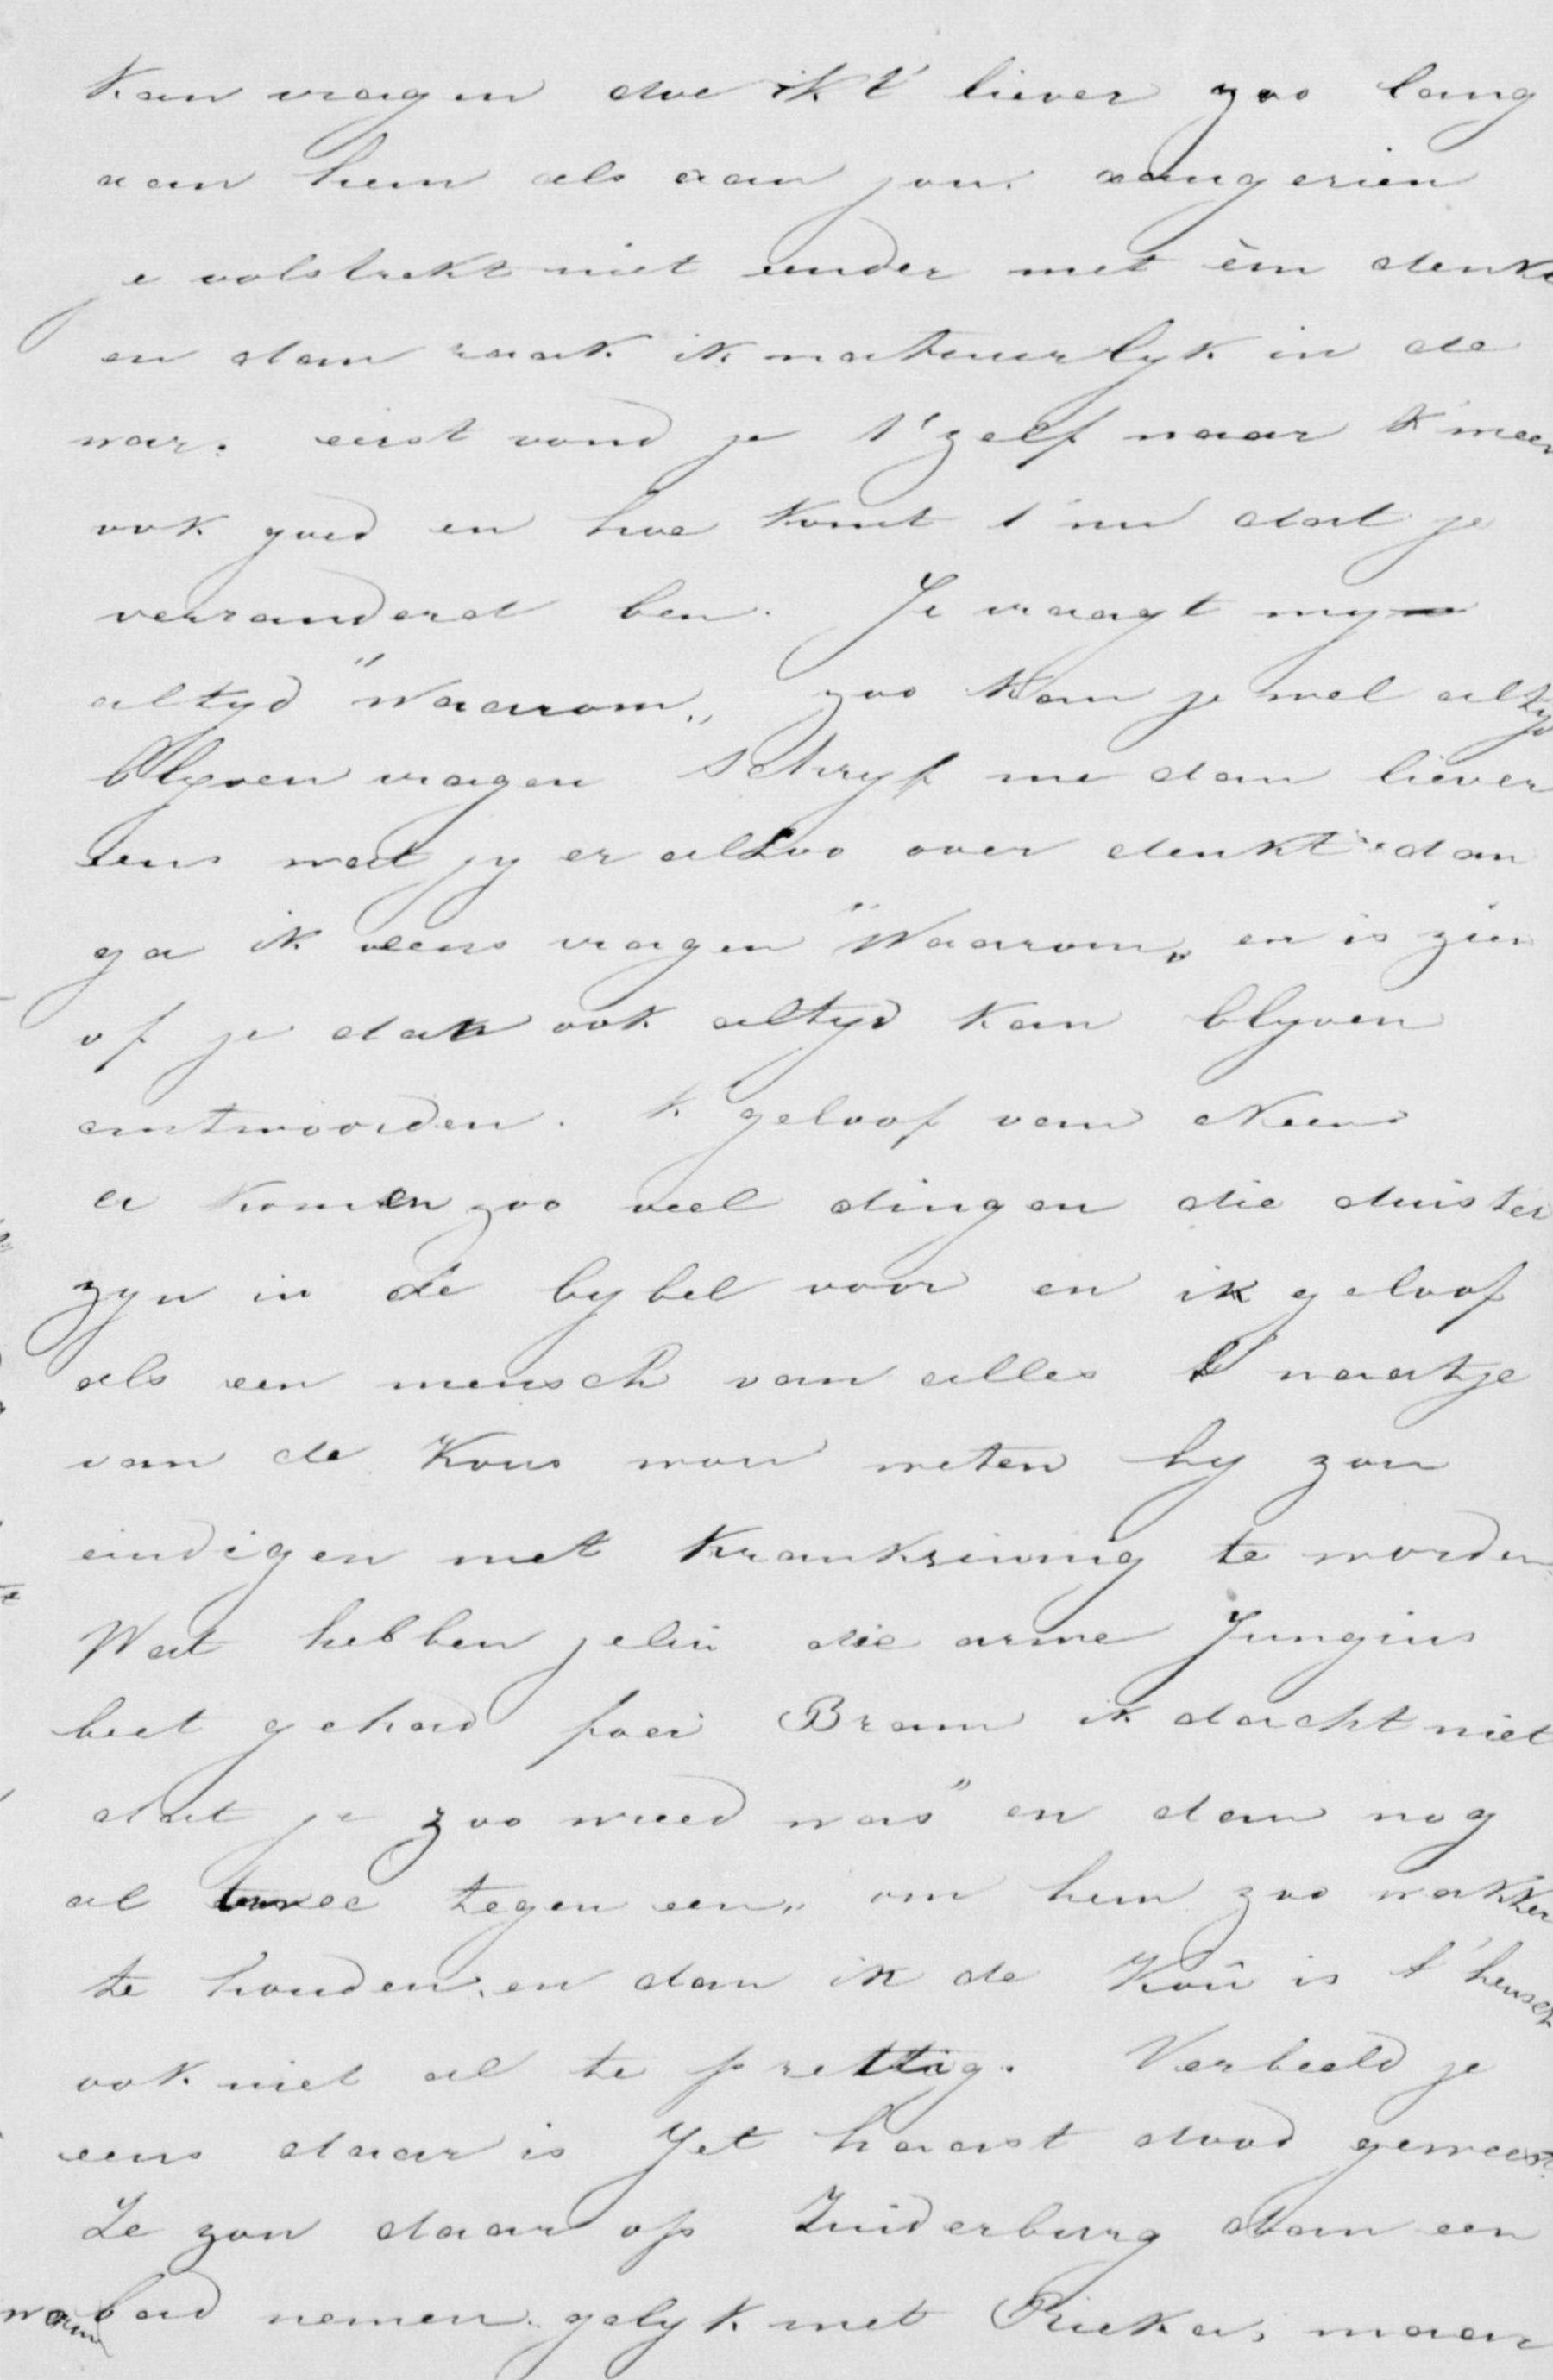 kan vragen doe ik t' liever zoo lang
aan hem als aan jou. aangezien
je volstrekt niet eender met èèn denkt
en dan raak ik natuurlyk in de
war. eerst vond je t' zelf naar k' meen
ook goed en hoe komt t' nu dat je
verranderd ben. Je vraagt my
altyd "Waarom„ zoo kan je wel altyd
blyven vragen Schryf me dan liever
eens wat jy er alzoo over denkt dan
ga ik eens vragen "Waarom„ en is zien
of je dan ook altyd kan blyven
antwoorden. k' geloof van Neen
er komen zoo veel dingen die duister
zyn in de bybel voor en ik geloof
als een mensch van alles t' naatje
van de Kous wou weten hy zou
eindigen met krankzinnig te worden
Wat hebben jelui die arme Jungius
beet gehad foei Bram ik dacht niet
dat je zoo wreed was" en dan nog
al twee tegen een„ om hem zoo wakker
te houden. en dan ik de Kou is t' heusch
ook niet al te prettig. Verbeeld je
eens daar is Jet haast dood geweest.
Ze zou daar op Zuiderburg dan een
warm bad nemen. gelyk met Rieka, maar